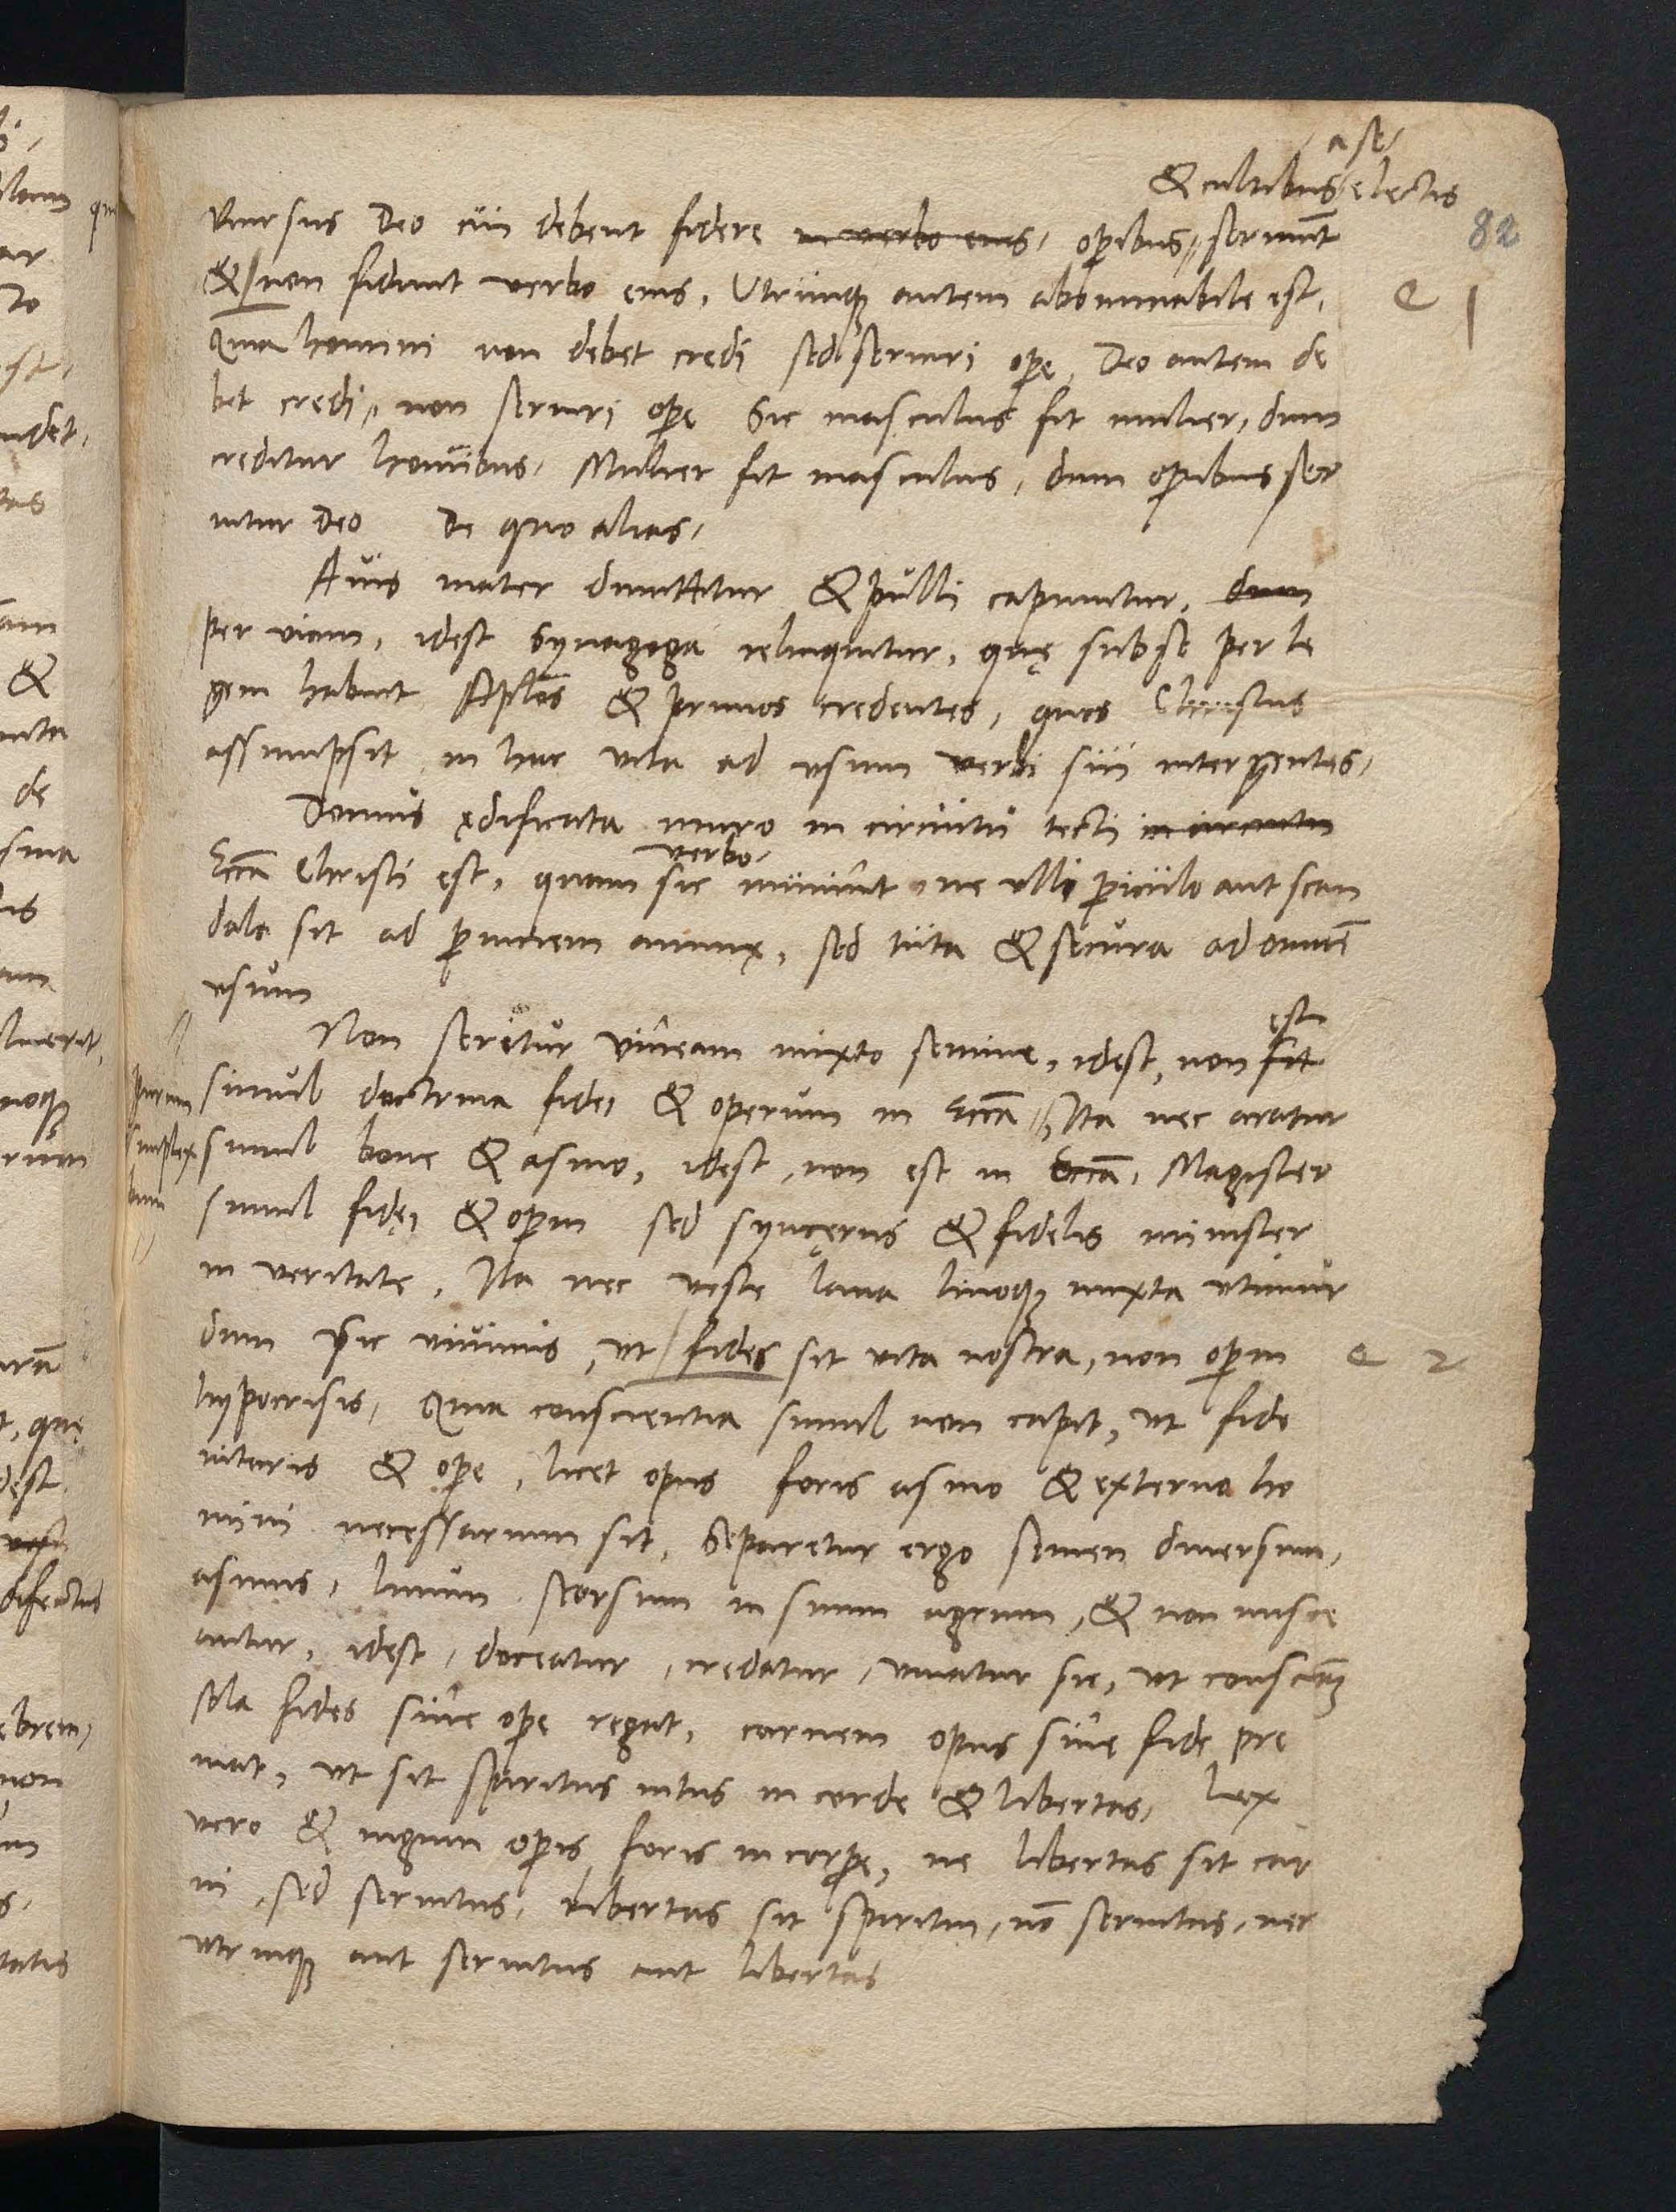 a se
& cultibus electis
82
Rursus Deo cui debent fidere in verbo eius, opibus, seruiunt
& non fidunt verbo eius, Vtrunque autem abominabile est,
Quia homini non debet credi sed seruiri ope, Deo autem de
bet credi, non seruiri ope Sic masculus fit mulier, dum
creditur hominibus, Mulier fit masculus, dum operibus ser
uitur Deo De quo alias,
Auis mater dimittitur & pulli capiuntur, dum
per viam, idest Synagoga relinquitur, quę sub se per le
gem habuit Aplos & primos credentes, quos Christus
assumpsit in hac vita ad vsum verbi sui inter gentes,
Domus ędificata muro in circuitu tecti in circuitu
verbo
Eccla Christi est, quam sic muniunt, ne vllo periculo aut scan
dalo sit ad perniciem animę, sed tuta & secura ad omnem
vsum
est
Non seritur vineam mixto semine, idest, non fit
simul doctrina fidei & operum in Eccla, Ita nec aratur
purum
simplex
simul boue & asino, idest, non est in Eccla, Magister
simul fidei & operum sed syncęrus & fidelis minister
in veritate, Ita nec veste lana linoque mixta vtimur
dum sic viuimus, vt fides sit vita nostra, non operum
2
hypocrisis, Quia conscientia simul non capit, vt fide
nitaris & ope, licet opus foris asino & externo ho
mini necessarium sit, Separetur ergo semen diuersum,
asinus, linum seorsum in suum agrum, & non misce
antur, idest, doceatur, credatur, viuatur sic, vt conscientiam
sola fides sine ope regat, carnem opus sine fide pre
mat, vt sit spiritus intus in corde & libertas, Lex
vero & iugum operis foris in corpore, ne libertas sit car
ni, sed seruitus, libertas sit spiritui, non seruitus, nec
vtrinque aut seruitus aut libertas